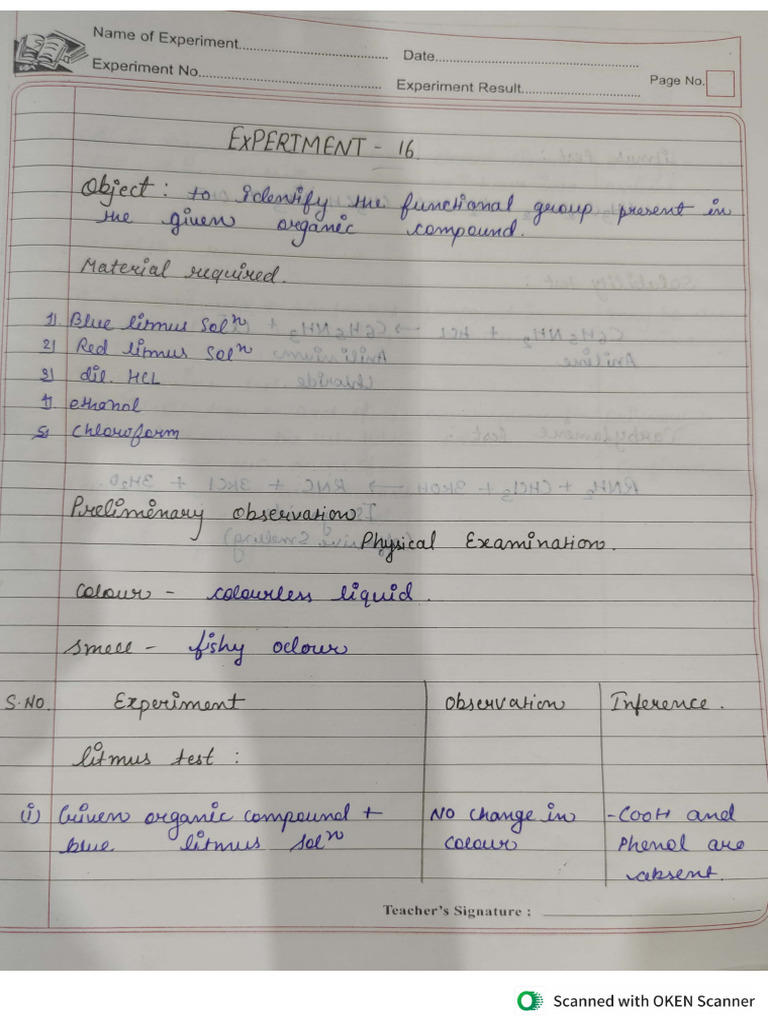 Name of Experiment
Date
Experiment No.
Experiment Result
Page No.
EXPERTMENT - 16.
Object : to identify the functional group present in
the given organic compound.
Material required.
1). Blue litmus Solⁿ
2) Red litmus Solⁿ
3) dil. HCL
4) ethanol
5) Chloroform
Preliminary Observation
Physical Examination.
Colour - colourless liquid.
Smell - fishy odour
S.NO. Experiment Observation Inference.
litmus test :
(i) Given organic compound + NO change in -COOH and
blue litmus solⁿ colour Phenol are
absent.
Teacher's Signature :
Scanned with OKEN Scanner